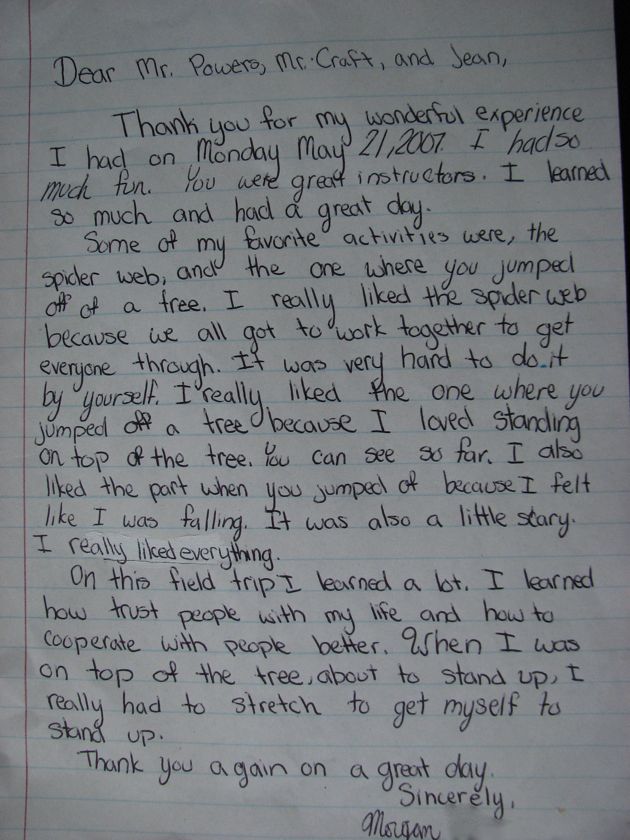 Dear Mr. Powers, Mr. Craft, and Jean,
Thank you for my wonderful experience
I had on Monday May 21, 2007. I had so
much fun. You were great instructors. I learned
so much and had a great day.
Some of my favorite activities were, the
spider web, and the one where you jumped
off of a tree. I really liked the spider web
because we all got to work together to get
everyone through. It was very hard to do it
by yourself. I really liked the one where you
jumped off a tree because I loved standing
on top of the tree. You can see so far. I also
liked the part when you jumped of because I felt
like I was falling. It was also a little scary.
I really liked everything.
On this field trip I learned a lot. I learned
how trust people with my life and how to
cooperate with people better. When I was
on top of the tree, about to stand up, I
really had to stretch to get myself to
stand up.
Thank you again on a great day.
Sincerely,
Morgan